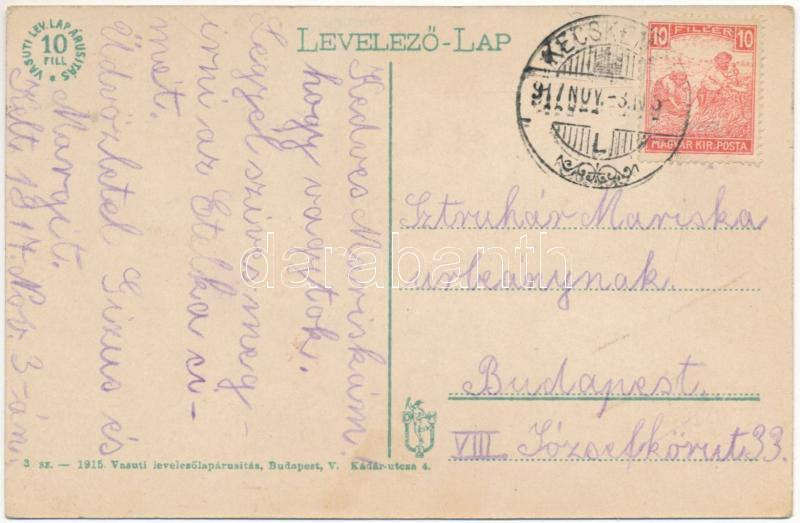 VASUTI LEV. LAP ÁRUSITÁS
10
FILL
LEVELEZŐ-LAP
KECSKEM
917 NOV. -3. N
L
10 FILLER 10
MAGYAR KIR. POSTA
Kedves Mariskám!
hogy vagytok.
Legyél szives meg-
irni az Etelka ci-
mét.
Üdvözletel Gizus és
Margit.
Kelt. 1917. Nov. 3-án.
Sztruhár Mariska
urleánynak.
Budapest.
VIII. Józsefkörut. 33.
darabanth
3 sz. — 1915. Vasuti levelezőlapárusitás, Budapest, V. Kádár-utcza 4.